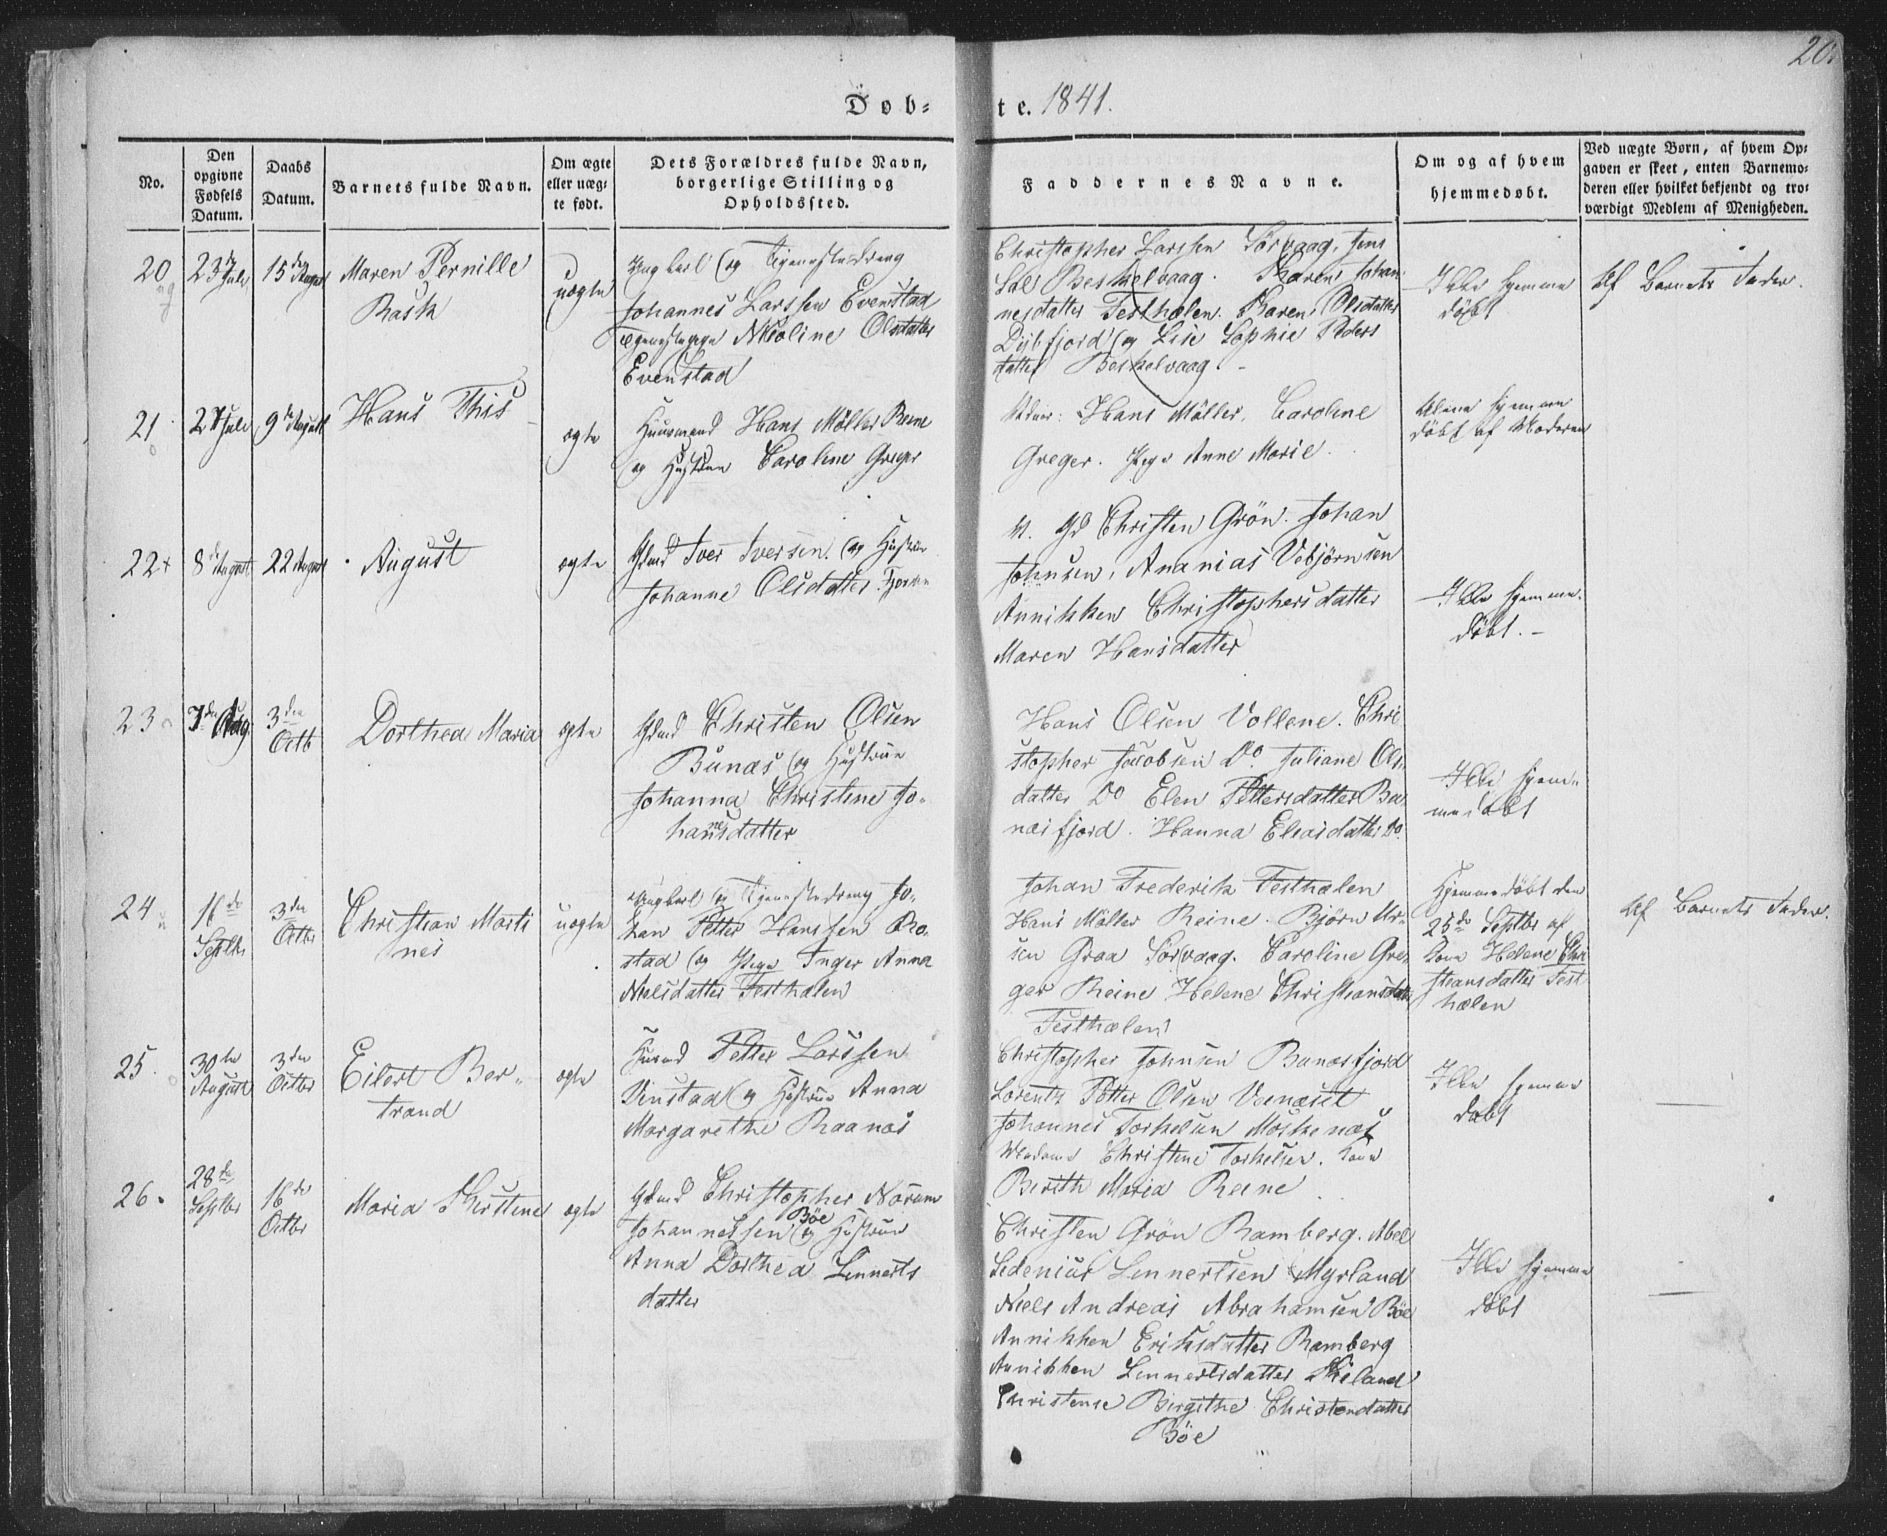 20.
Døb-te. 1841.
No.
Den opgivne Fødsels Datum.
Daabs Datum.
Barnets fulde Navn.
Om ægte eller uæg-te født.
Dets Forældres fulde Navn, borgerlige Stilling og Opholdssted.
Faddernes Navne.
Om og af hvem hjemmedøbt.
Ved uægte Børn, af hvem Op-gaven er skeet, enten Barnemo-deren eller hvilket bekjendt og tro-værdigt Medlem af Menigheden.
20
23de Juli
15de August
Maren Pernille
Bask
uægte
Ungkarl og Tjenestedreng
Johannes Larssen Evenstad
Tjenestepige Nicoline Olsdatter
Evenstad
Christopher Larssen Sørvaag. Jens
Sal Beskelvaag. Karen Johan
nesdatter Festhælen. Karen Olsdatter
Dybfjord og Lise Sophie Peders
datter Beskelvaag
Ikke hjemme
døbt
Af Barnets Fader.
21
27 Juli
9de August
Hans This
ægte
Huusmand Hans Møller Reine
og Hustrue Caroline Greger
Hans Møller. Caroline
Greger. Pige Anne Marie.
Alene hjemme
døbt af Moderen
22
8de August
22 August
August
ægte
Gbmd Iver Iversen og Hustrue
Johanne Olsdatter
Christen Grön. Johan
Johnsen, Ananias Vebjörnsen
Annikken Christophersdatter
Maren Hansdatter
Ikke hjemme
døbt.
23
7de Aug
3den
Octb
Dorthea Maria
ægte
Gbmd Christen Olsen
Bunæs og Hustrue
Johanna Christine Jo-
hannesdatter
Hans Olsen Vollene. Chri
stopher Jacobsen Do. Juliane Ols
datter Do Elen Pettersdatter Bu
næsfjord. Hanna Eliasdatter Do.
Ikke hjem-
medøbt
24
16de
Septbr
3den
Octbr
Christian Marti
nes
uægte
Ungkarl og Tjenestedreng Jo-
han Petter Hanssen Ro-
stad og Pige Inger Anna
Nielsdatter Festhælen
Johan Frederik Festhælen
Hans Møller Reine. Björn
sen Graa Sørvaag. Caroline Gre-
ger Reine Helene Christiansdatter
Festhælen
Hjemmedøbt den
25de Septbr af
Kone Helene Chri
stiansdatter Fest
hælen
Af Barnets Fader.
25.
30te
August
3den
Octbr
Eilert Ber-
trand
ægte
Huusmd Petter Larssen
Vinstad og Hustrue Anna
Margarethe Raanæs
Christopher Johnsen Bunæsfjord
Lorentz Petter Olsen
Johannes Torkelsen Moskenæs
Madame Christine Torkelsen. Kone
Berith Maria Reine
Ikke hjemme
døbt
26.
28de
Septbr
16de
Octbr
Maria Kirstine
ægte
Gbmd Christopher Norum
Johannessen Böe og Hustrue
Anna Dorthea Lennerts
datter
Christen Grön Ramberg. Abel
Sedenius Lennertsen Myrland
Niels Andreas Abrahamsen Böe
Annikken Eriksdatter Ramberg
Annikken Lennertsdatter
Christense Birgithe Christensdatter
Böe
Ikke hjemme
døbt